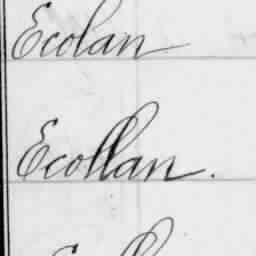 Ecolan
Ecollan.